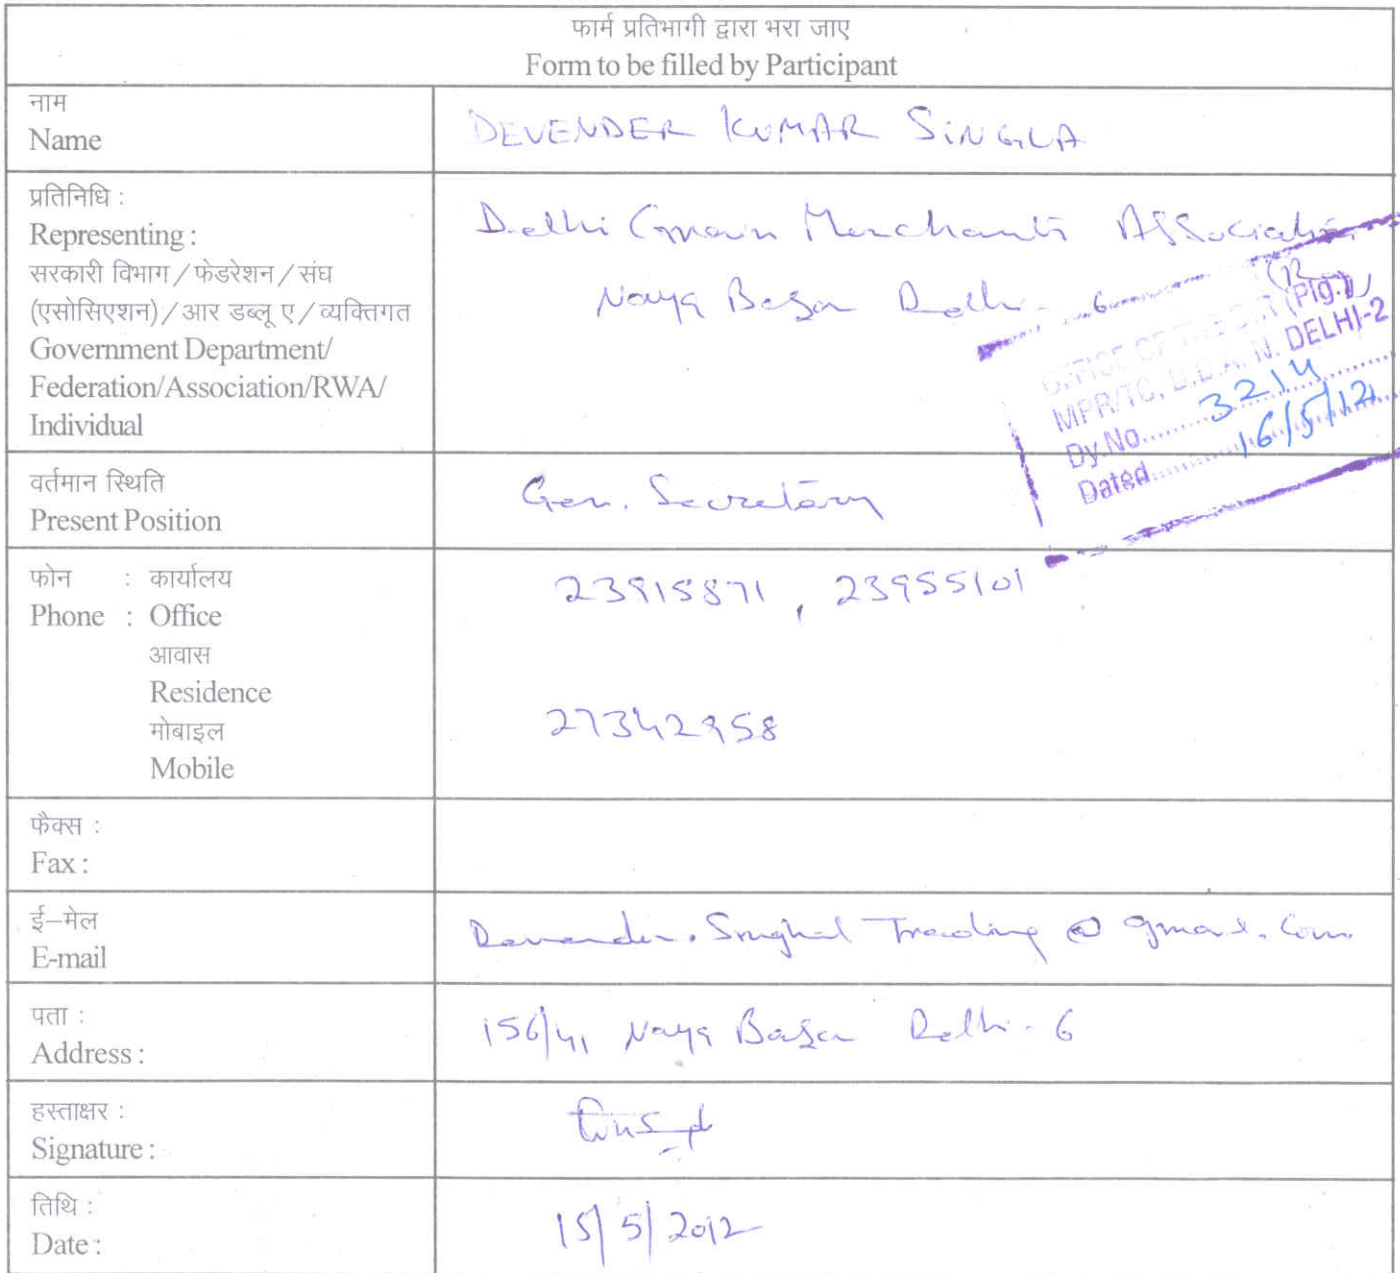 फार्म प्रतिभागी द्वारा भरा जाए
Form to be filled by Participant
नाम
Name
DEVENDER KUMAR SINGLA
प्रतिनिधि :
Representing :
सरकारी विभाग / फेडरेशन / संघ
(एसोसिएशन) / आर डब्लू ए / व्यक्तिगत
Government Department/
Federation/Association/RWA/
Individual
Delhi Grain Merchants Association
Naya Bazar Delhi - 6
OFFICE OF THE (Plg.)
MPR/TC, D.D.A. N. DELHI-2
Dy.No. 3214
Dated 16/5/12
वर्तमान स्थिति
Present Position
Gen. Secretary
फोन : कार्यालय
Phone : Office
23915871, 23955101
आवास
Residence
मोबाइल
Mobile
27342958
फैक्स :
Fax :
ई–मेल
E-mail
Devender. Singhal Trading @ gmail. Com
पता :
Address :
156/41 Naya Bazar Delhi - 6
हस्ताक्षर :
Signature :
तिथि :
Date :
15/5/2012